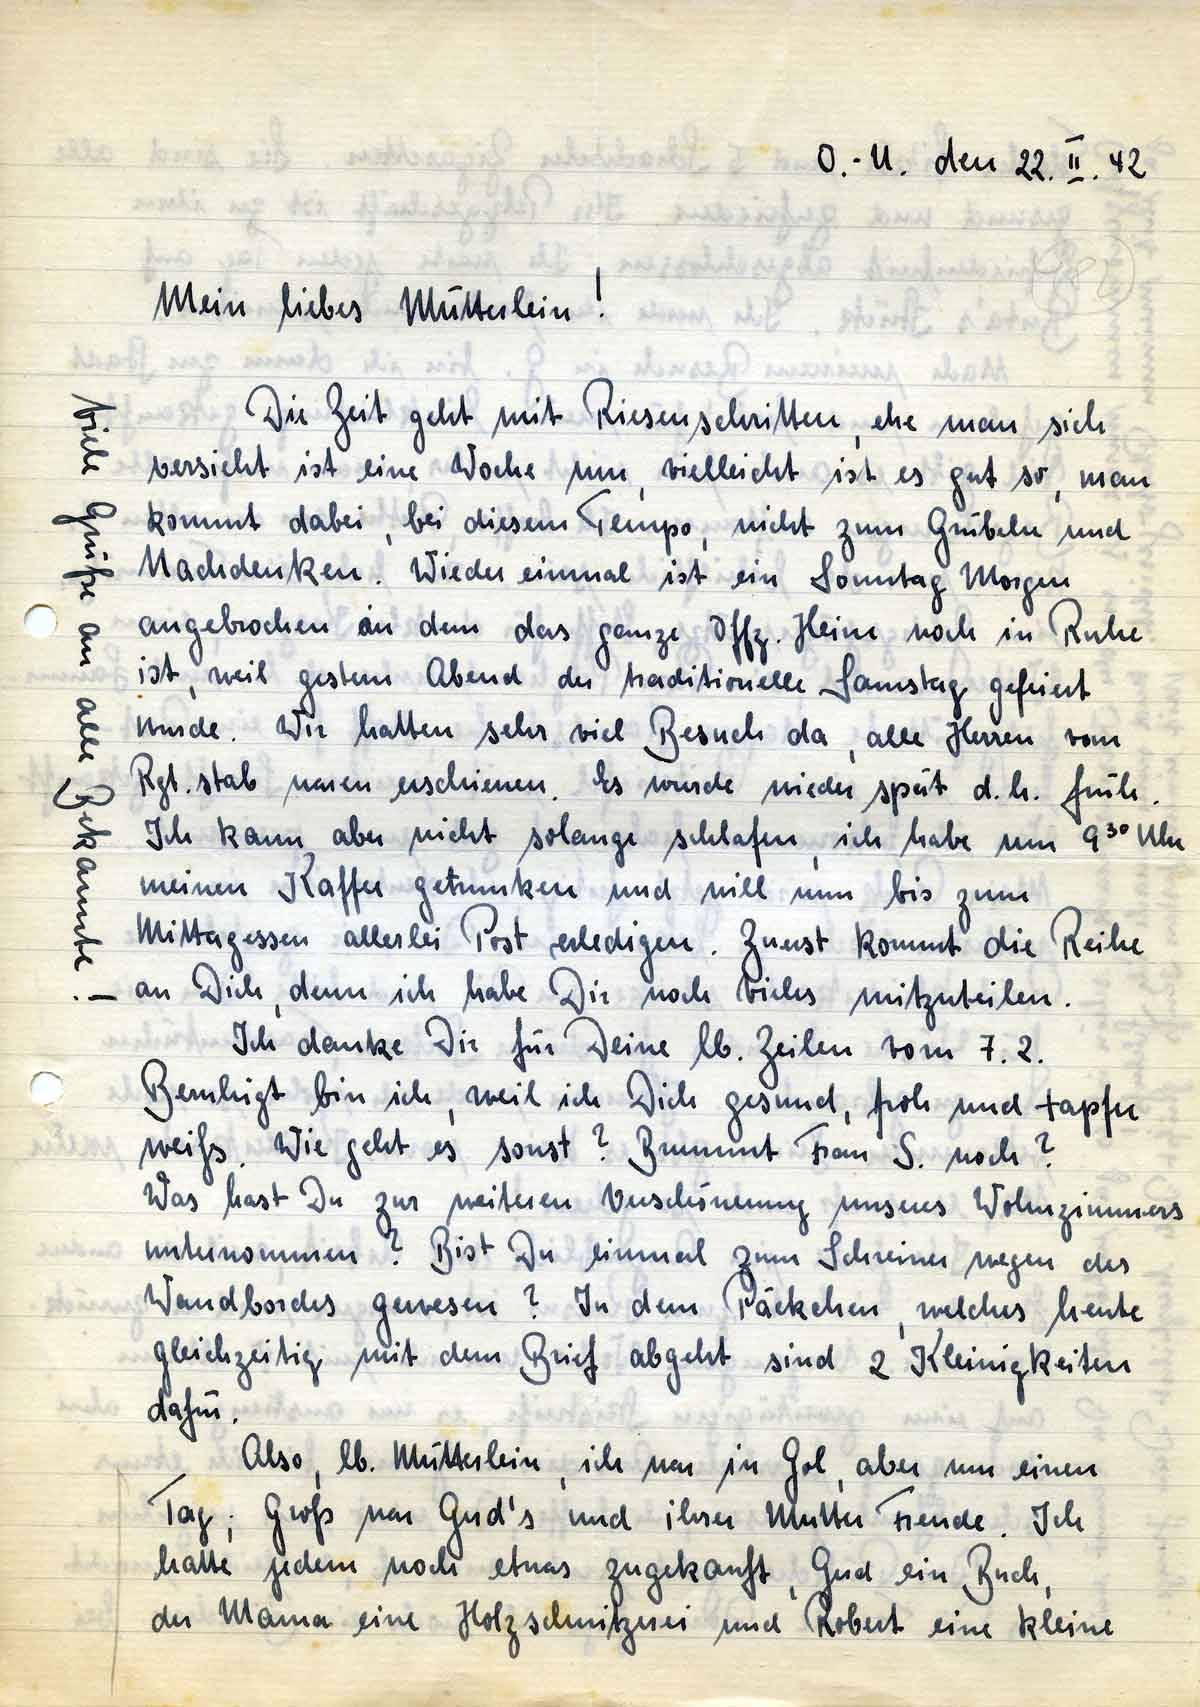 O.-U. den 22. II. 42
Mein liebes Mütterlein!
Die Zeit geht mit Riesenschritten, ehe man sich
versieht ist eine Woche um, vielleicht ist es gut so, man
kommt dabei, bei diesem Tempo, nicht zum Grübeln und
Nachdenken. Wieder einmal ist ein Sonntag Morgen
angebrochen in dem das ganze Offz. Heim noch in Ruhe
ist, weil gestern Abend der traditionelle Samstag gefeiert
wurde. Wir hatten sehr viel Besuch da, alle Herren vom
Rgt. stab waren erschienen. Es wurde wieder spät d. h. früh.
Ich kann aber nicht solange schlafen, ich habe um 9³⁰ Uhr
meinen Kaffee getrunken und will nun bis zum
Mittagessen allerlei Post erledigen. Zuerst kommt die Reihe
an Dich, denn ich habe Dir noch vieles mitzuteilen.
Ich danke Dir für Deine lb. Zeilen vom 7. 2.
Beruhigt bin ich, weil ich Dich gesund, froh und tapfer
weiß. Wie geht es sonst? Brummt Frau S. noch?
Was hast Du zur weiteren Verschönerung unseres Wohnzimmers
unternommen? Bist Du einmal zum Schreiner wegen des
Wandbordes gewesen? In dem Päckchen, welches heute
gleichzeitig mit dem Brief abgeht sind 2 Kleinigkeiten
dafür.
Also, lb. Mütterlein, ich war in Gol, aber nur einen
Tag; Groß war Gud's und ihrer Mutter Freude. Ich
hatte jedem noch etwas zugekauft, Gud ein Buch,
der Mama eine Holzschnitzerei und Robert eine kleine
viele Grüße an alle Bekannte! –